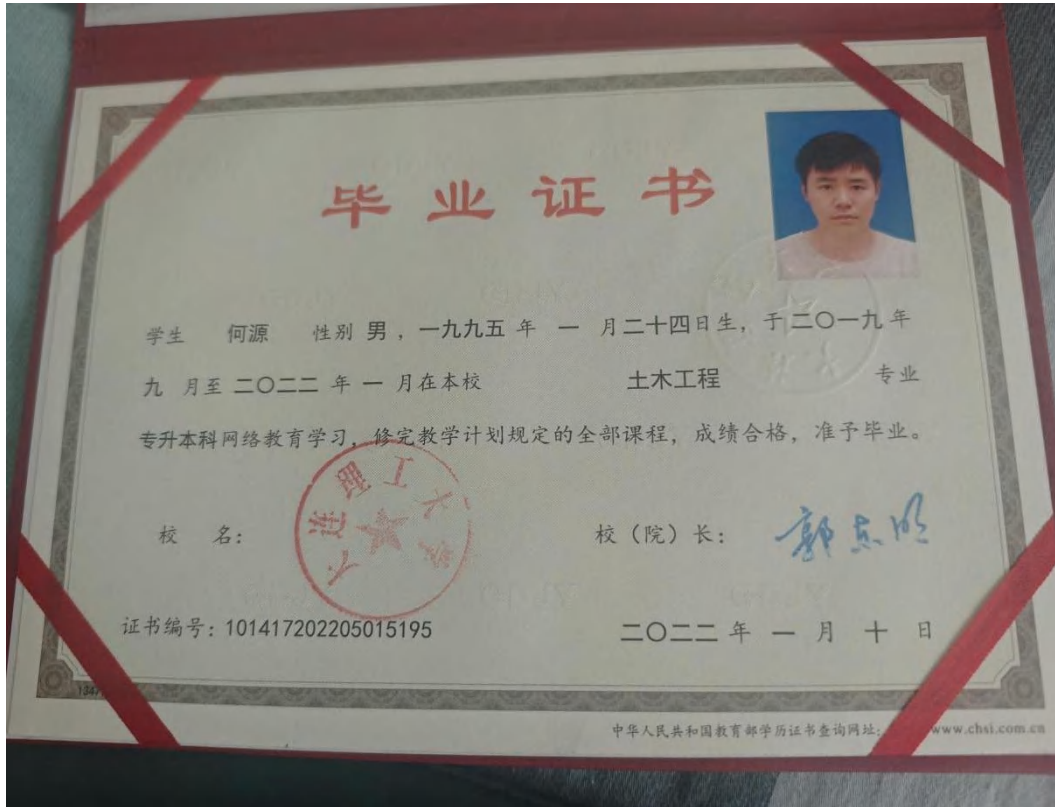 毕业证书
学生 何源 性别 男，一九九五 年 一 月二十四日生，于二〇一九年
九 月至 二〇二二 年 一 月在本校 土木工程 专业
专升本科网络教育学习，修完教学计划规定的全部课程，成绩合格，准予毕业。
大连理工大学
校 名： 校（院）长： 郭东明
证书编号：101417202205015195 二〇二二 年 一 月 十 日
中华人民共和国教育部学历证书查询网址： www.chsi.com.cn